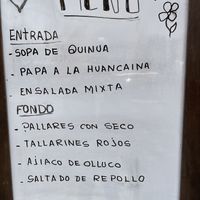 MENÚ
ENTRADA
- SOPA DE QUINUA
- PAPA A LA HUANCAINA
- ENSALADA MIXTA
FONDO
- PALLARES CON SECO
- TALLARINES ROJOS
- AJIACO DE OLLUCO
- SALTADO DE REPOLLO